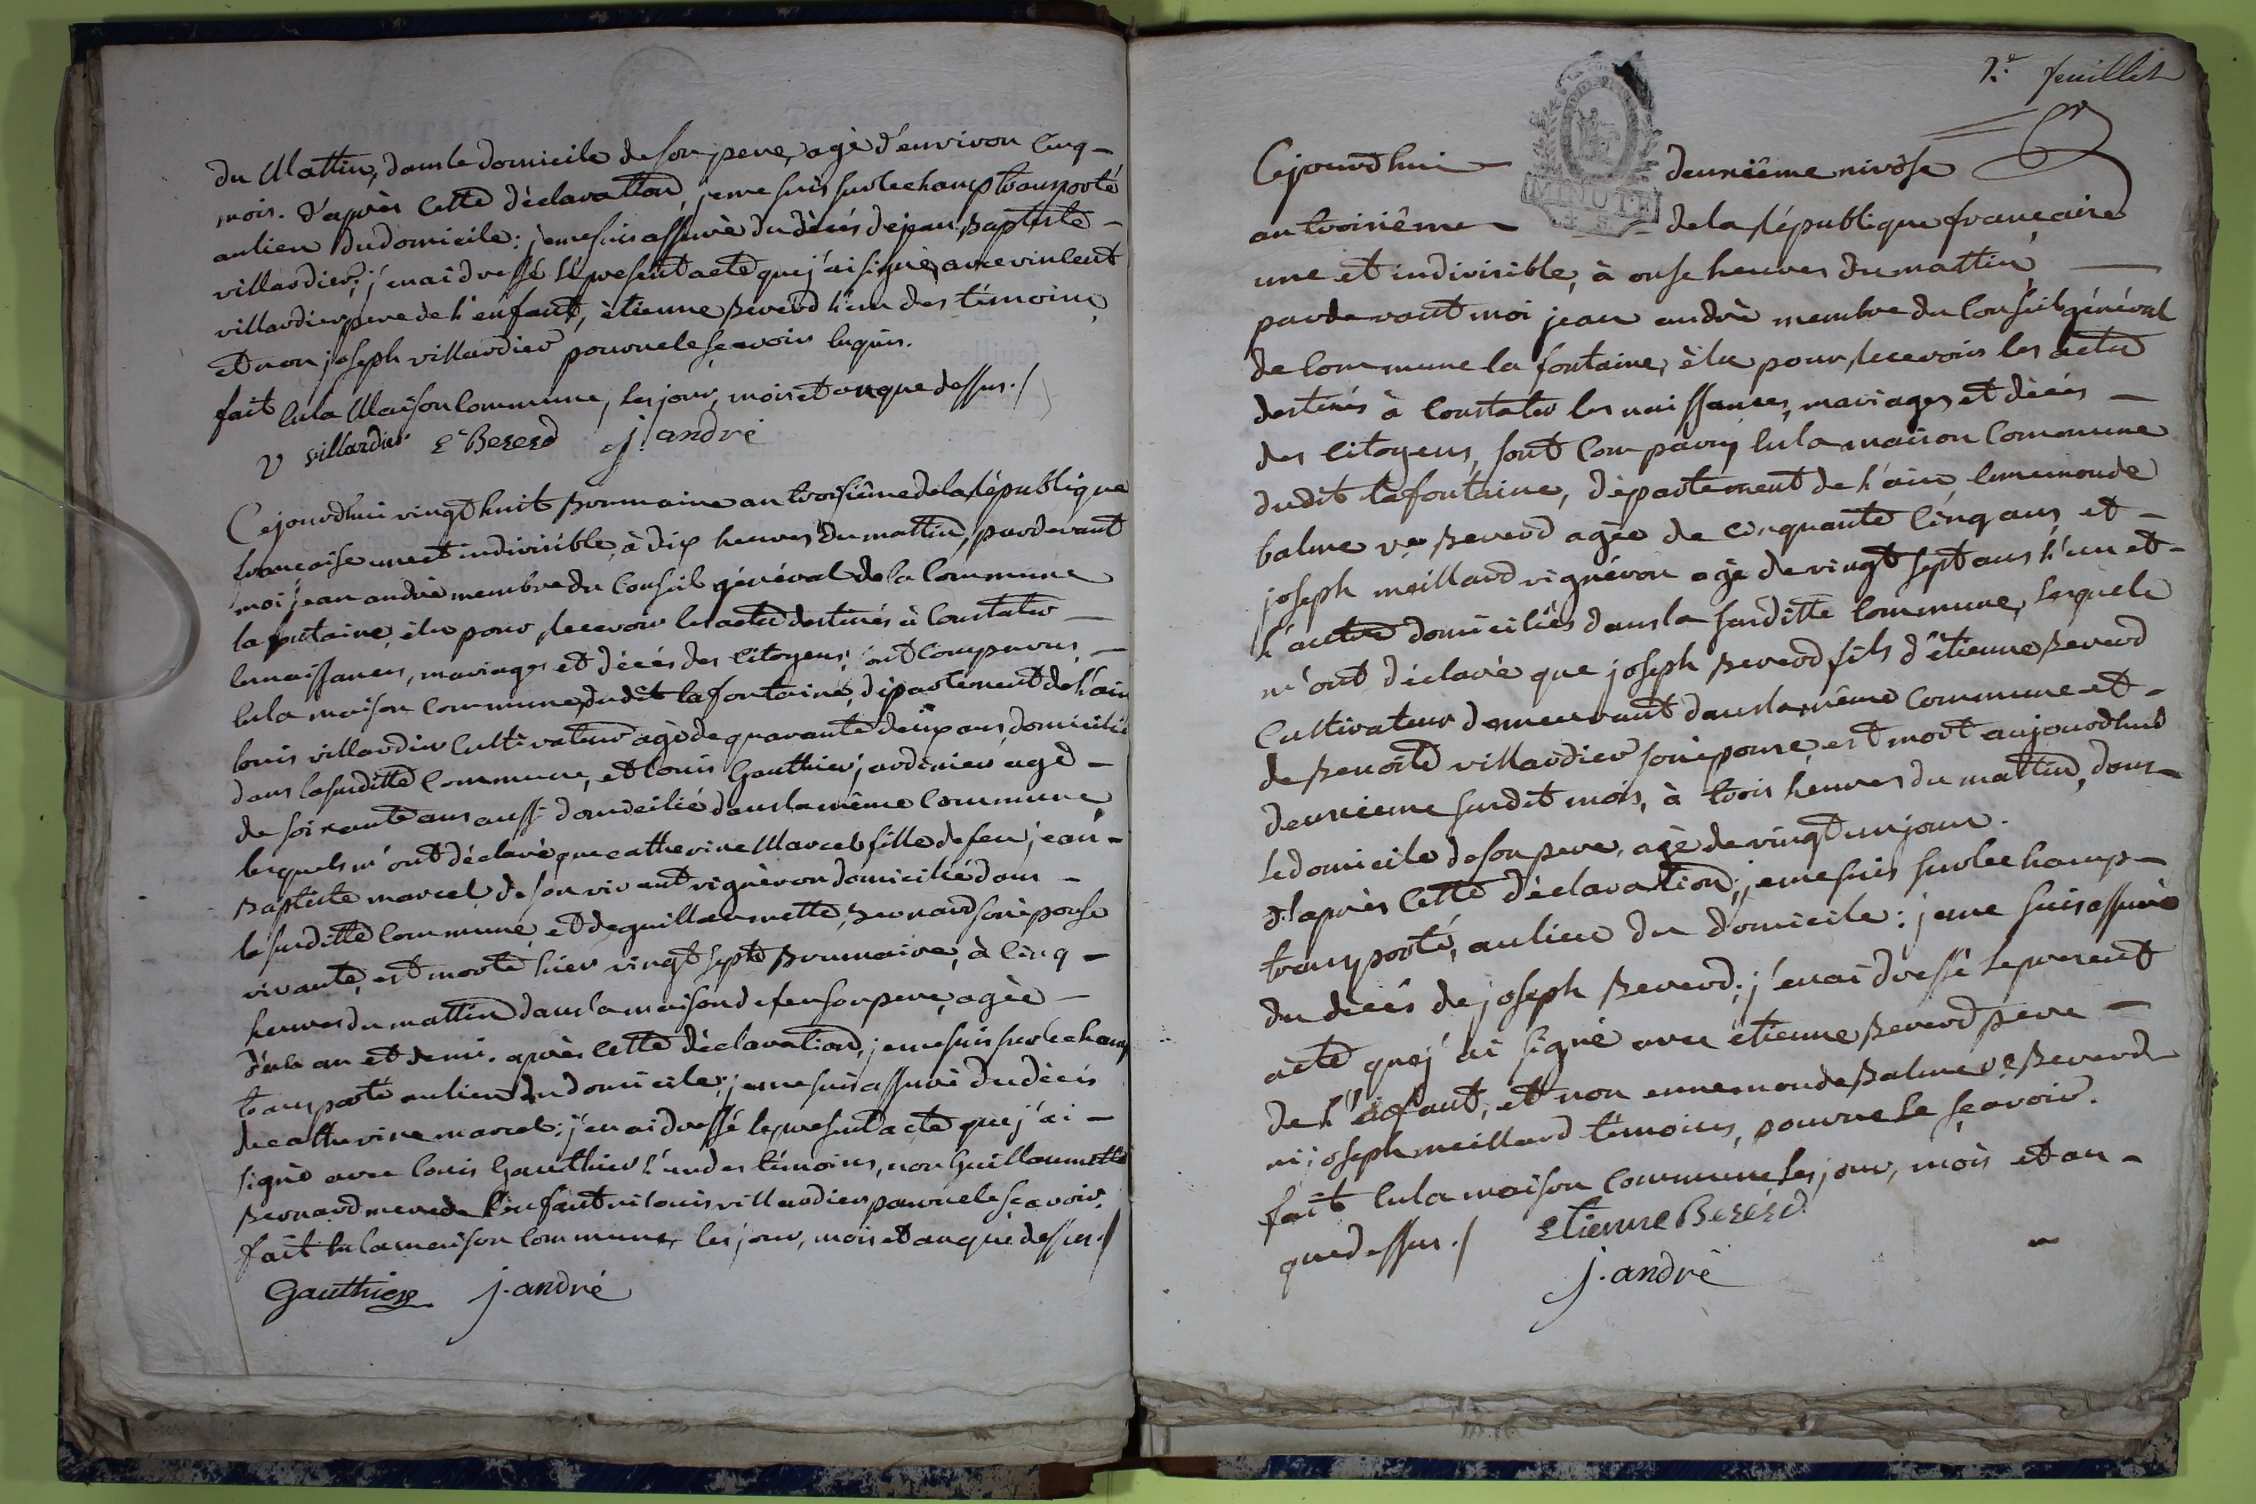 du Mattin, dans le domicile de son pere, agè d'environ cinq
mois. d'après cette dèclaration, je me suis sur le champ transporté
au lieu du domicile: je me suis assurè du dècès de jean Baptiste
villardier; j'en ai dressé le present acte que j'ai signè, avec vincent
villardier pere de l'enfant, ètienne Bererd l'un des témoins,
et non joseph villardier pour ne le sçavoir requis.
fait en la Maison Commune, les jour, mois et an que dessus./
V villardier E Bererd j. andré
Cejourdhui vingt huit Brumaire an troisième de la république
francaise une et indivisible, à dix heures du mattin, pardevant
moi jean andrè membre du Conseil gènèral de la Commune
la fontaine, èlu pour recevoir les actes destinés à Constater
les naissances, mariages et décès des Citoyens; ont Comparus
en la maison Commune dudit la fontaine, département de l'ain
louis villardier Cultivateur agè de quarante deux ans, domicilié
dans la susditte Commune, et louis Gauthier jardinier agé
de soixante ans aussi domicilié dans la même Commune
lesquels m'ont déclaré que catherine Marcel fille de feu jean
Baptiste marcel de son vivant vignèron domicilié dans
la susditte Commune et de guillaumette Bernard son èpouse
vivante, est morte hier vingt sept Brumaire, à cinq
heures du mattin dans la maison de feu son pere, agèe
d'un an et demi. après cette dèclaration, je me suis sur le champ
transporté au lieu du domicile; je me suis assuré du dècès
de catherine marcel: j'en ai dressé le present acte que j'ai
signè avec louis Gauthier l'un des témoins, non Guillaumette
Bernard mere de l'enfant ni louis villardier pour ne le sçavoir.
fait en la maison Commune, les jour, mois et an que dessus./
Gauthier j. andré
2.e feuillet
Cejourdhui deuxième nivôse
an troisième de la république française
MINUTE
une et indivisible, à onse heures du mattin,
pardevant moi jean andrè membre du Conseil général
de Commune la fontaine, èlu pour recevoir les actes
destinés à Constater les naissances, mariages et décès
des Citoyens, sont Comparus en la maison Commune
dudit la fontaine, département de l'ain, ennemonde
balme v.e Bererd agèe de cinquante cinq ans et
joseph meillard vignéron agè de vingt sept ans l'un et
l'autre domiciliés dans la susditte Commune, lesquels
m'ont déclaré que joseph Bererd fils d'ètienne Bererd
Cultivateur demeurant dans la même Commune et
de Benoite villardier son èpouse, est mort aujourdhui
deuxieme susdit mois, à trois heures du mattin, dans
le domicile de son pere, agè de vingt un jour.
d'après cette dèclaration, je me suis sur le champ
transporté, au lieu du domicile: je me suis assurè
du dècès de joseph Bererd; j'en ai dressé le present
acte que j'ai signé avec étienne Bererd pere
de l'enfant, et non ennemonde Balme v.e Bererd
ni joseph meillard témoins, pour ne le sçavoir.
fait en la maison Commune les jour, mois et an
que dessus./ Etienne Bererd
j. andrè